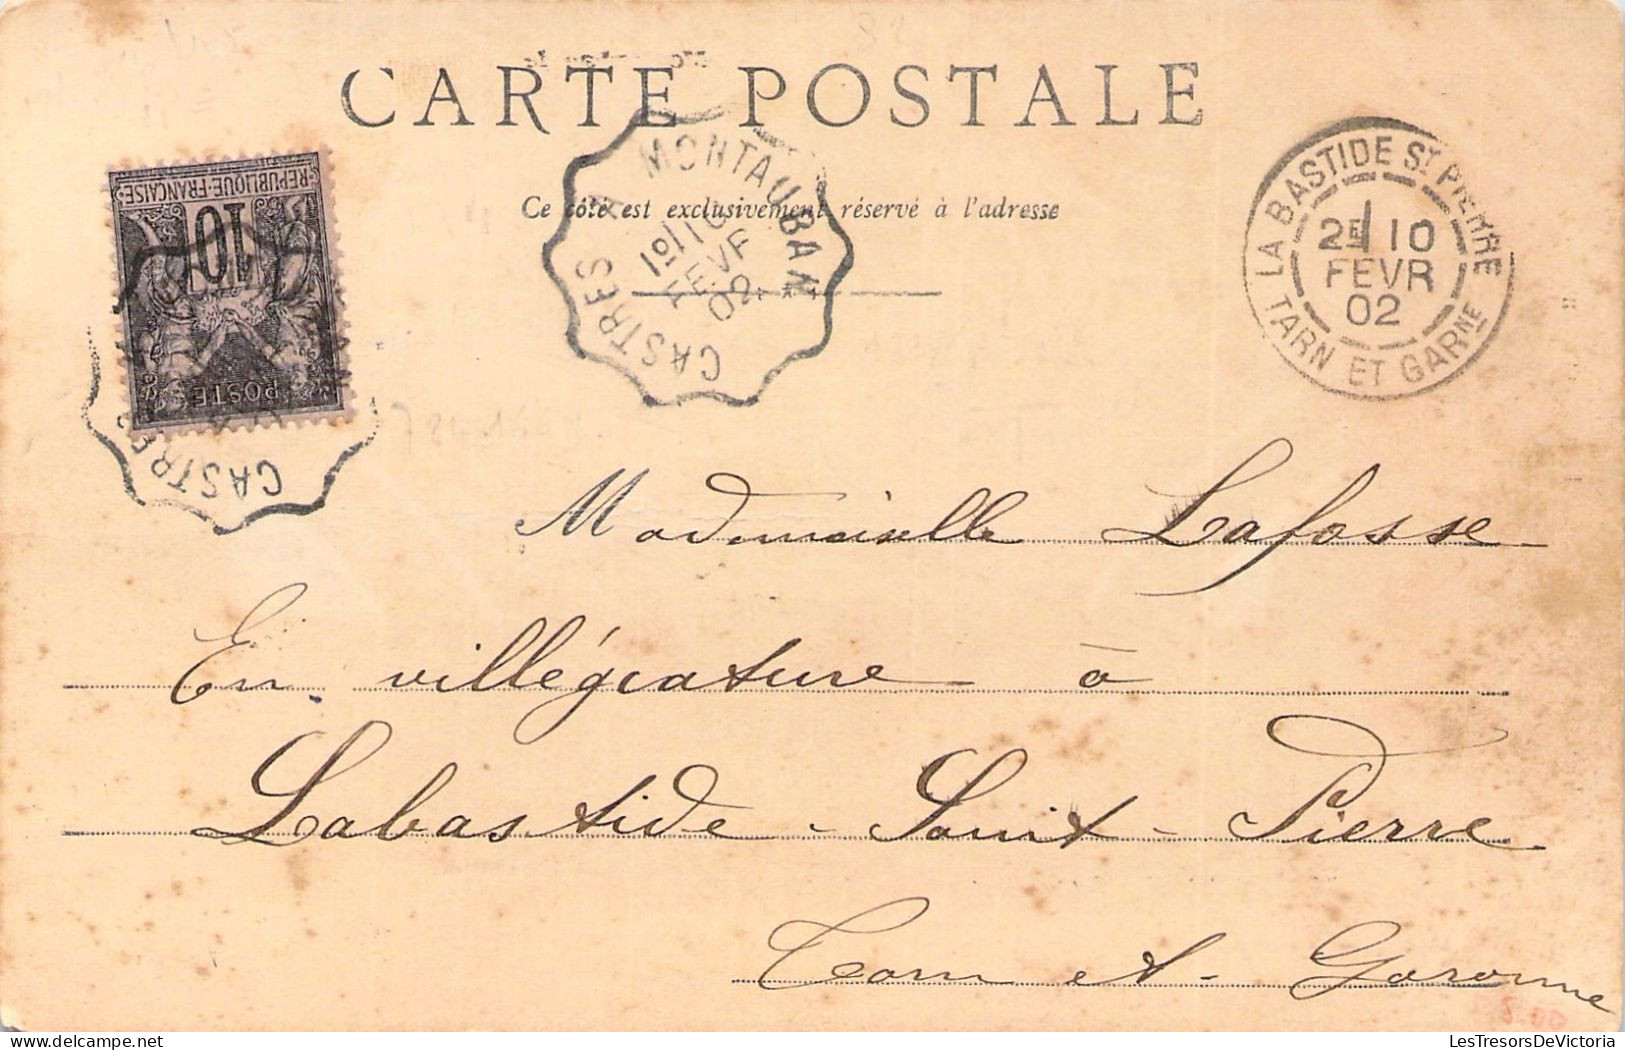 CARTE POSTALE
Ce côté est exclusivement réservé à l'adresse
REPUBLIQUE·FRANÇAISE
10
POSTES
CASTRES
CASTRES A MONTAUBAN
1º 10
FEVR
02
LA BASTIDE ST PIERRE
2E 10
FEVR
02
TARN ET GARNE
Mademoiselle Lafosse
En villégiature à
Labastide - Saint - Pierre
Tarn et - Garonne
LesTresorsDeVictoria